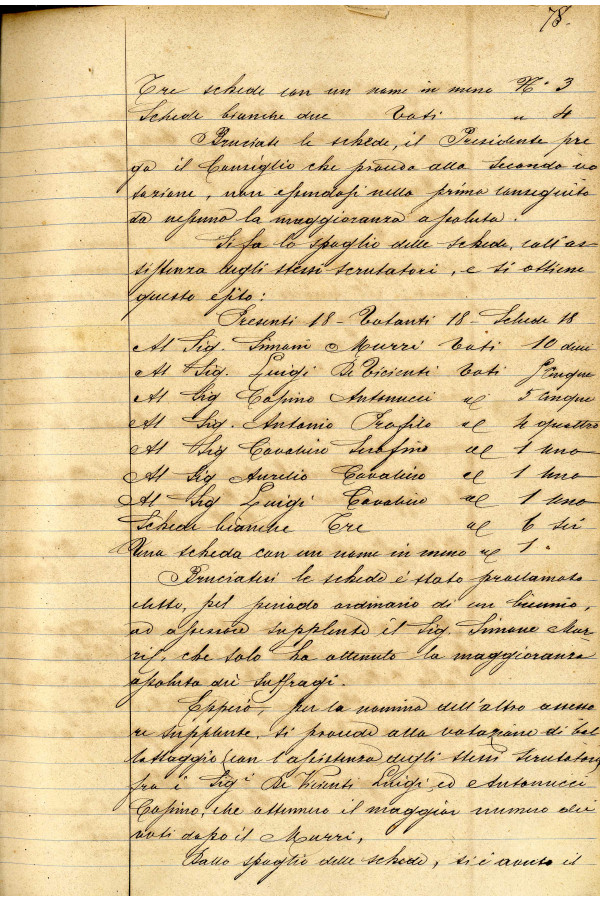 78.
Tre schede con un nome in meno N.° 3
Schede bianche due Voti " 4
Bruciate le schede, il Presidente pre
ga il Consiglio che proceda alla seconda vo
tazione, non essendosi nella prima conseguita
da nessuno la maggioranza assoluta.
Si fa lo spoglio delle schede, coll'as-
sistenza degli stessi scrutatori, e si ottiene
questo esito:
Presenti 18 - Votanti 18 - Schede 18
Al Sig. Simoni Murri Voti 10 dieci
Al Sig. Luigi De Vicienti Voti 5 cinque
Al Sig Antonucci id 5 cinque
Al Sig. Antonio Profilo id 4 quattro
Al Sig Cavaliero Serafino id 1 uno
Al Sig Aurelio Cavaliero id 1 uno
Al Sig Luigi Cavaliero id 1 uno
Schede bianche Tre id 6 sei
Una scheda con un nome in meno id 1 "
Bruciatesi le schede è stato proclamato
eletto, pel periodo ordinario di un biennio,
ad assessore supplente il Sig. Simone Mur-
ri, che solo ha ottenuto la maggioranza
assoluta dei suffragi.
Epperò, per la nomina dell'altro assesso
re supplente, si procede alla votazione di bal
lottaggio (con l'assistenza degli stessi scrutatori)
fra i Sigⁱ De Vicenti Luigi, ed Antonucci
che ottennero il maggior numero dei
voti dopo il Murri,
Dallo spoglio delle schede, si è avuto il